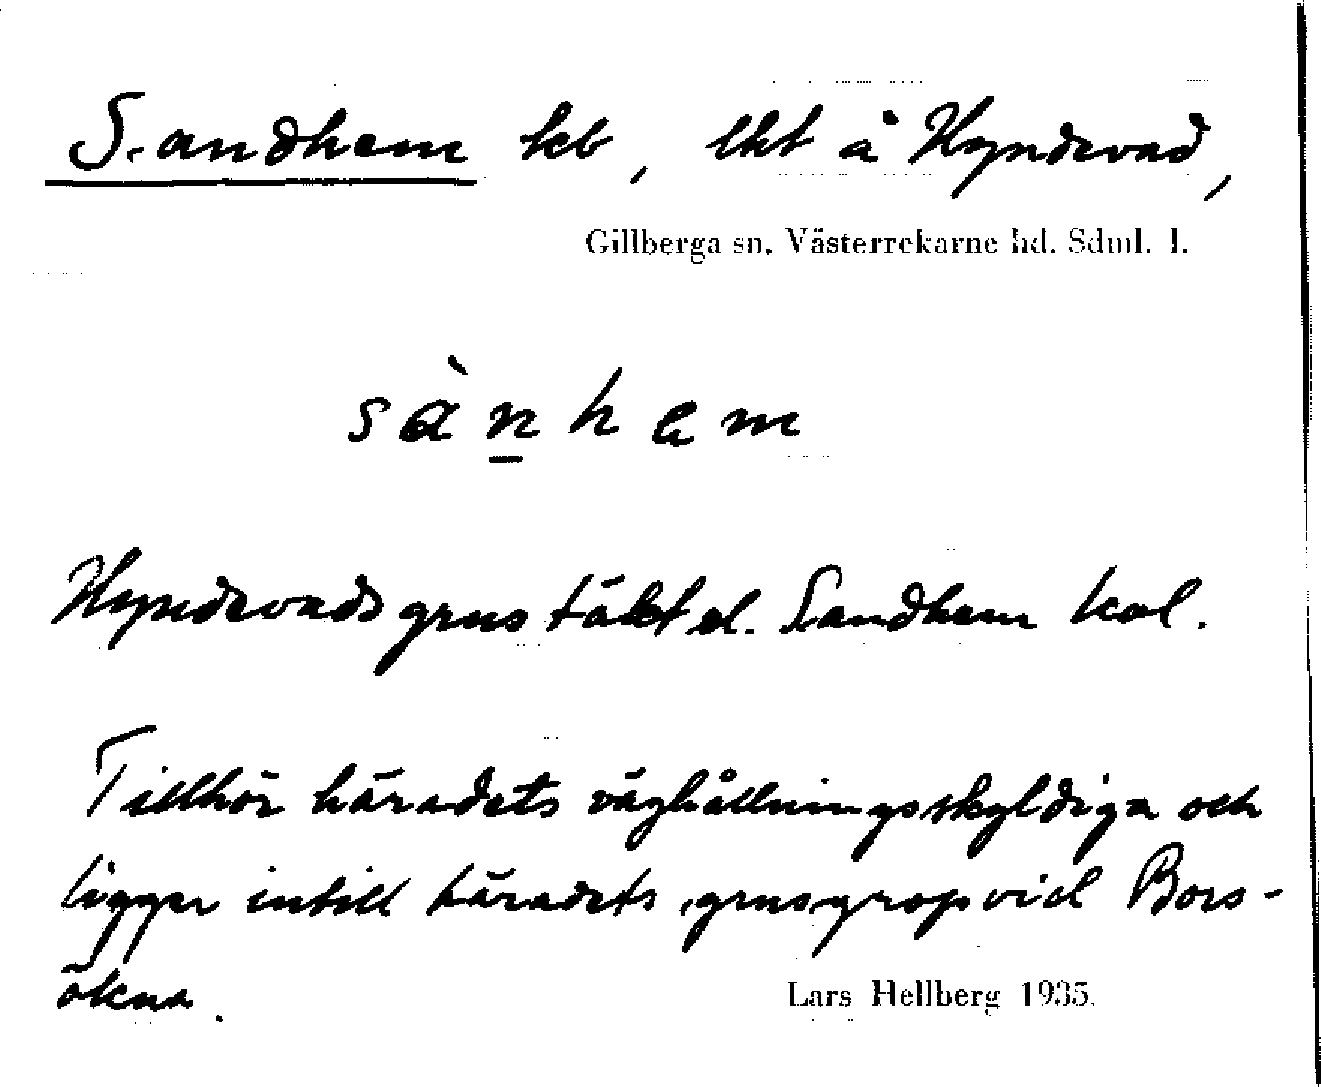 Sandhem heb, lht å Hyndevad,
Gillberga sn. Västerrekarne hd. Sdml. l.
sàn̲hem
Hyndevads grustäkt el. Sandhem kal.
Tillhör häradets väghållningsskyldiga och
ligger intill häradets grusgrop vid Bors-
ökna.
Lars Hellberg 1935.